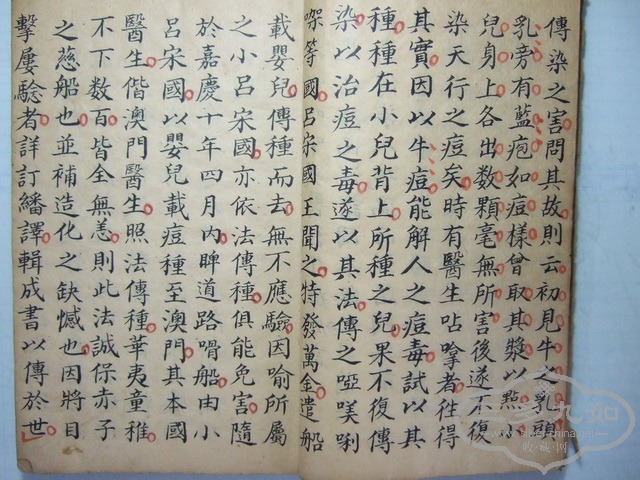 傳染之害問其故則云初見牛之乳頭
乳旁有藍疱如痘樣曾取其漿以點小
兒身上各出数顆毫無所害後遂不復
染天行之痘矣時有醫生咕嗱者往得
其實因以牛痘能解人之痘毒試以其
種種在小兒背上所種之兒果不復傳
染以治痘之毒遂以其法傳之啞𠸄唎
㗎等國呂宋國王聞之特發萬金遣船
載嬰兒傳種而去無不應驗因喻所屬
之小呂宋國亦依法傳種俱能免害隨
於嘉慶十年四月内啤道路嗗船由小
呂宋國以嬰兒載痘種至澳門其本國
醫生偕澳門醫生照法傳種華夷童稚
不下数百皆全無恙則此法誠保赤子
之慈船也並補造化之缺憾也因將目
擊屢驗者詳訂繙譯輯成書以傳於世
九如
收藏网